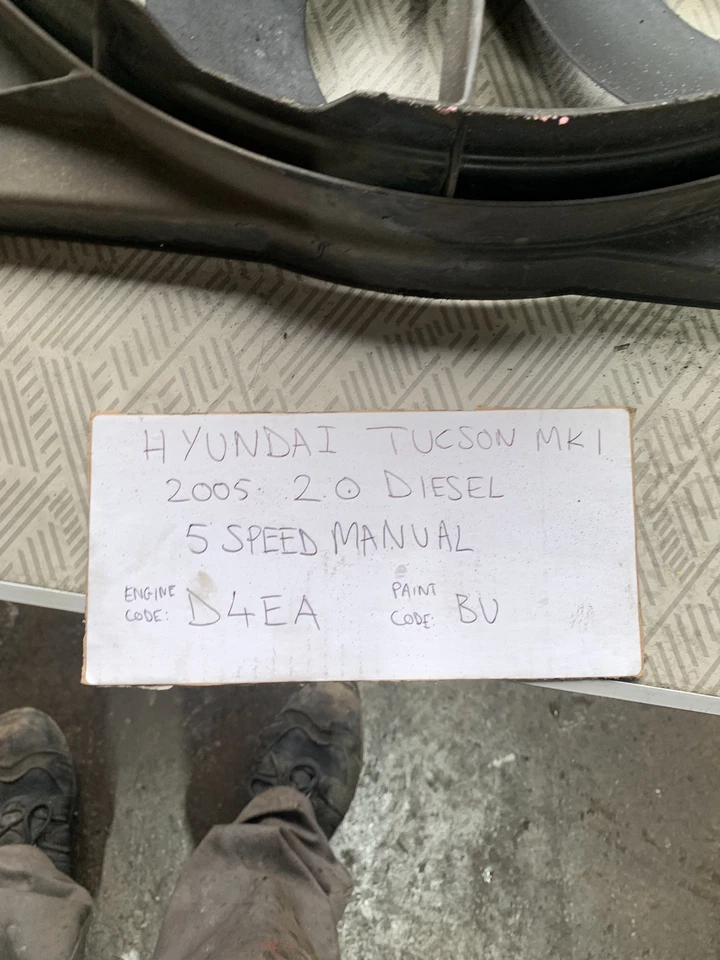 HYUNDAI TUCSON MK1
2005 2.0 DIESEL
5 SPEED MANUAL
ENGINE CODE: D4EA
PAINT CODE: BU